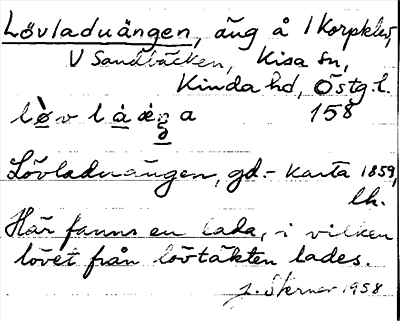 Lövladuängen, äng å 1 Korpklev,
V Sandbäcken, Kisa sn,
Kinda hd, Östg. l.
158
Lövladuängen, gd.- karta 1859,
lk.
Här fanns en lada, i vilken
lövet från lövtäkten lades.
J. Sterner 1958